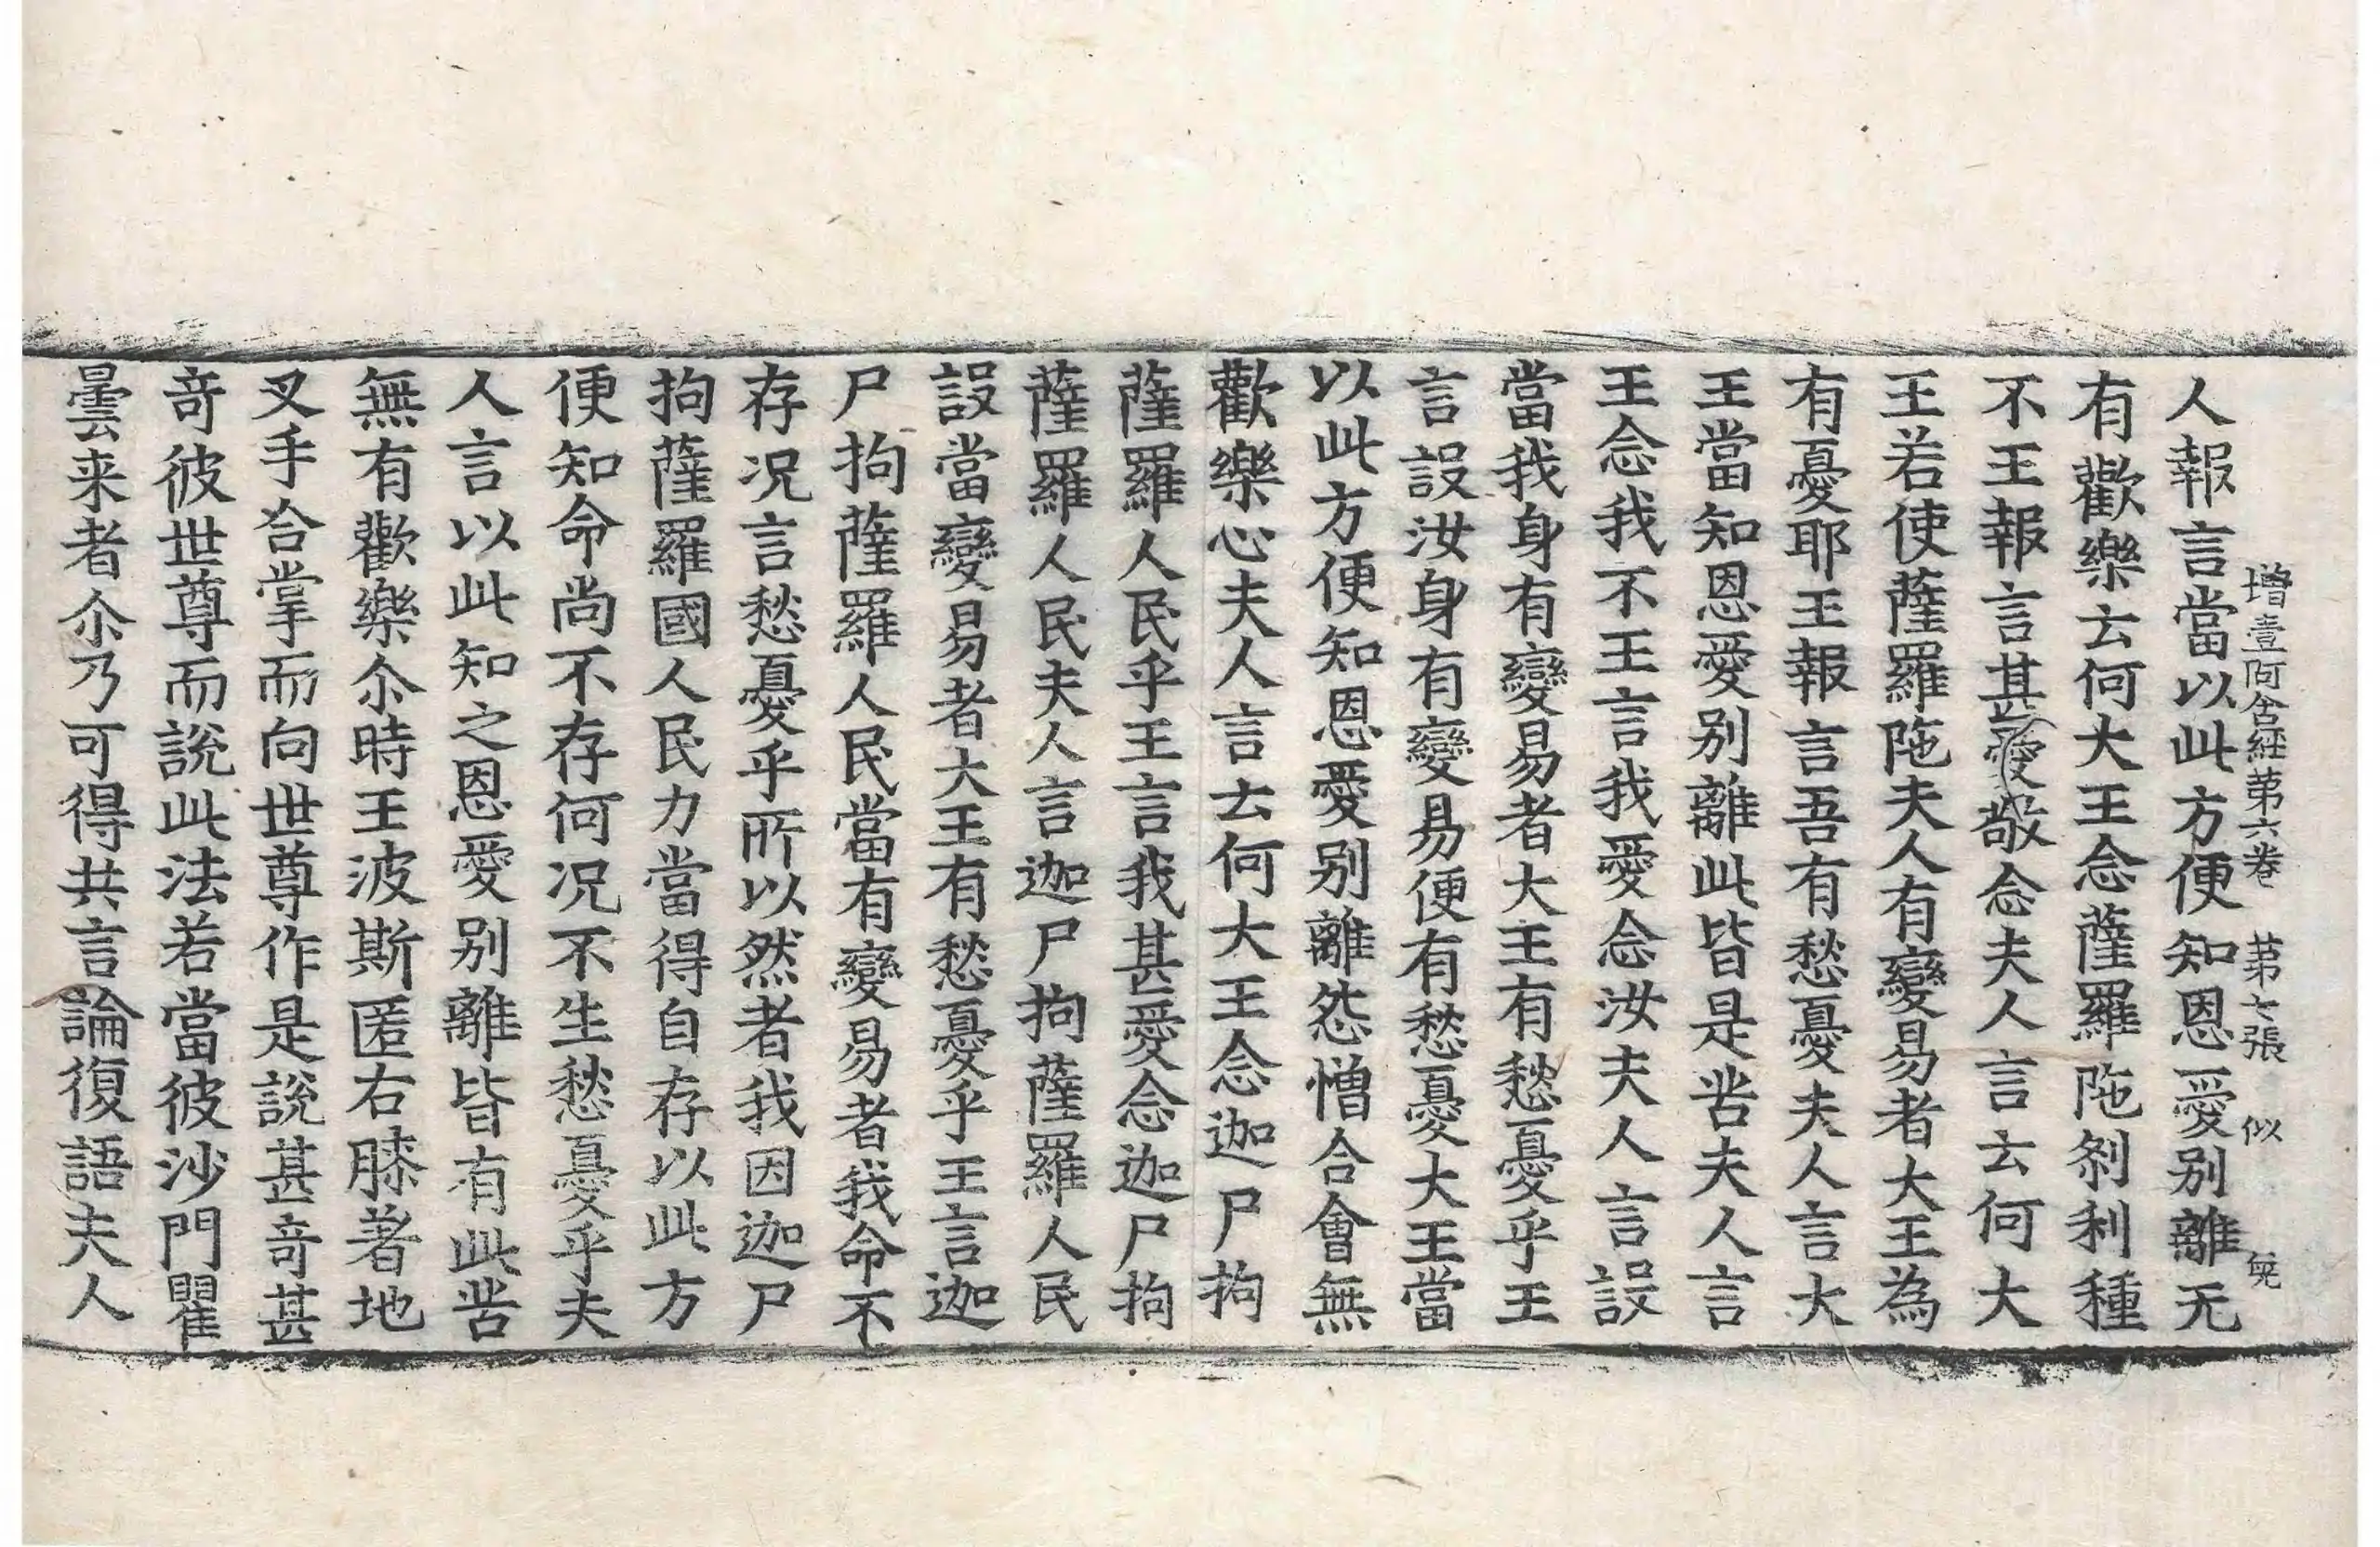 增壹阿含經第六卷 第七張 似
人報言當以此方便知恩愛别離无
有歡樂云何大王念薩羅陁刹利種
不王報言甚愛敬念夫人言云何大
王若使薩羅陁夫人有變易者大王為
有憂耶王報言吾有愁憂夫人言大
王當知恩愛别離此皆是苦夫人言
王念我不王言我愛念汝夫人言設
當我身有變易者大王有愁憂乎王
言設汝身有變易便有愁憂大王當
以此方便知恩愛别離怨憎合會無
歡樂心夫人言云何大王念迦尸拘
薩羅人民乎王言我甚愛念迦尸拘
薩羅人民夫人言迦尸拘薩羅人民
設當變易者大王有愁憂乎王言迦
尸拘薩羅人民當有變易者我命不
存况言愁憂乎所以然者我因迦尸
拘薩羅國人民力當得自存以此方
便知命尚不存何况不生愁憂乎夫
人言以此知之恩愛别離皆有此苦
無有歡樂尒時王波斯匿右膝著地
叉手合掌而向世尊作是說甚奇甚
奇彼世尊而說此法若當彼沙門瞿
曇来者尒乃可得共言論復語夫人